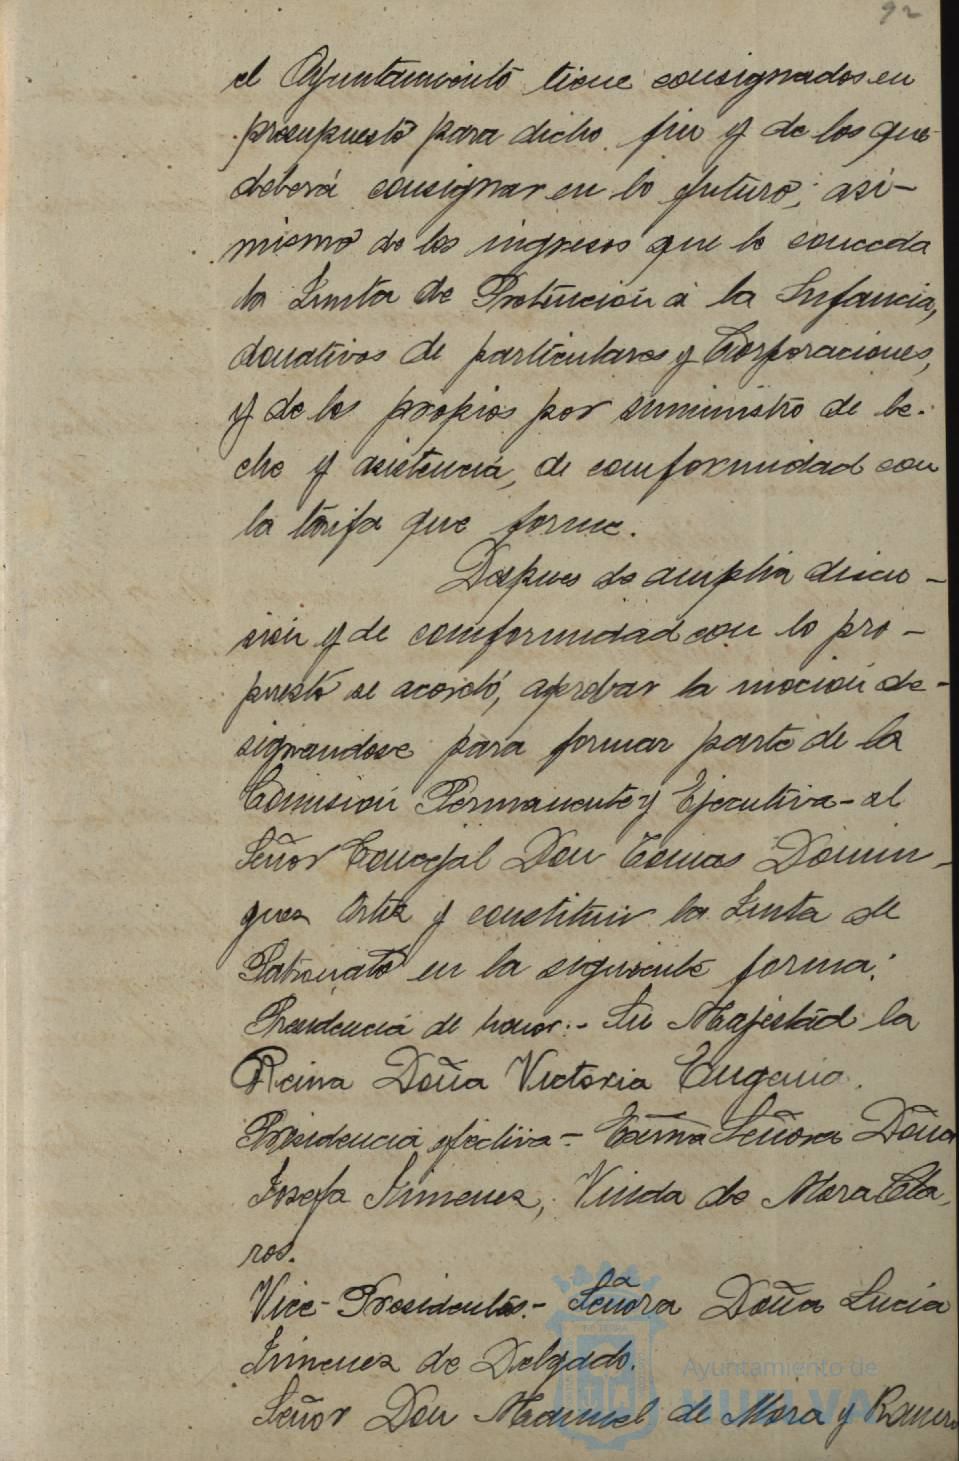 92
el Ayuntamiento tiene consignados en
presupuesto para dicho fin y de los que
deberá consignar en lo futuro; asi-
mismo de los ingresos que le conceda
la Junta de Protección á la Infancia,
donativos de particulares y Corporaciones,
y de los propios por suministro de le-
che y asistencia, de comformidad con
la tarifa que forme.
Despues de amplia discu-
sión y de comformidad con lo pro-
puesto se acordó, aprobar la moción de-
signandose para formar parte de la
Comisión Permanente y Ejecutiva - al
Señor Concejal Don Tomas Domin-
guez Ortiz y constituir la Junta de
Patronato en la siguiente forma:
Presidencia de honor:- Su Majestad la
Reina Doña Victoria Eugenia.
Presidencia efectiva - Exma Señora Doña
Josefa Jimenez, Viuda de Mora Cla-
ros.
Vice-Presidentes.- Señora Doña Lucia
Jimenez de Delgado.
Señor Don Manuel de Mora y Romero
Ayuntamiento de
HUELVA